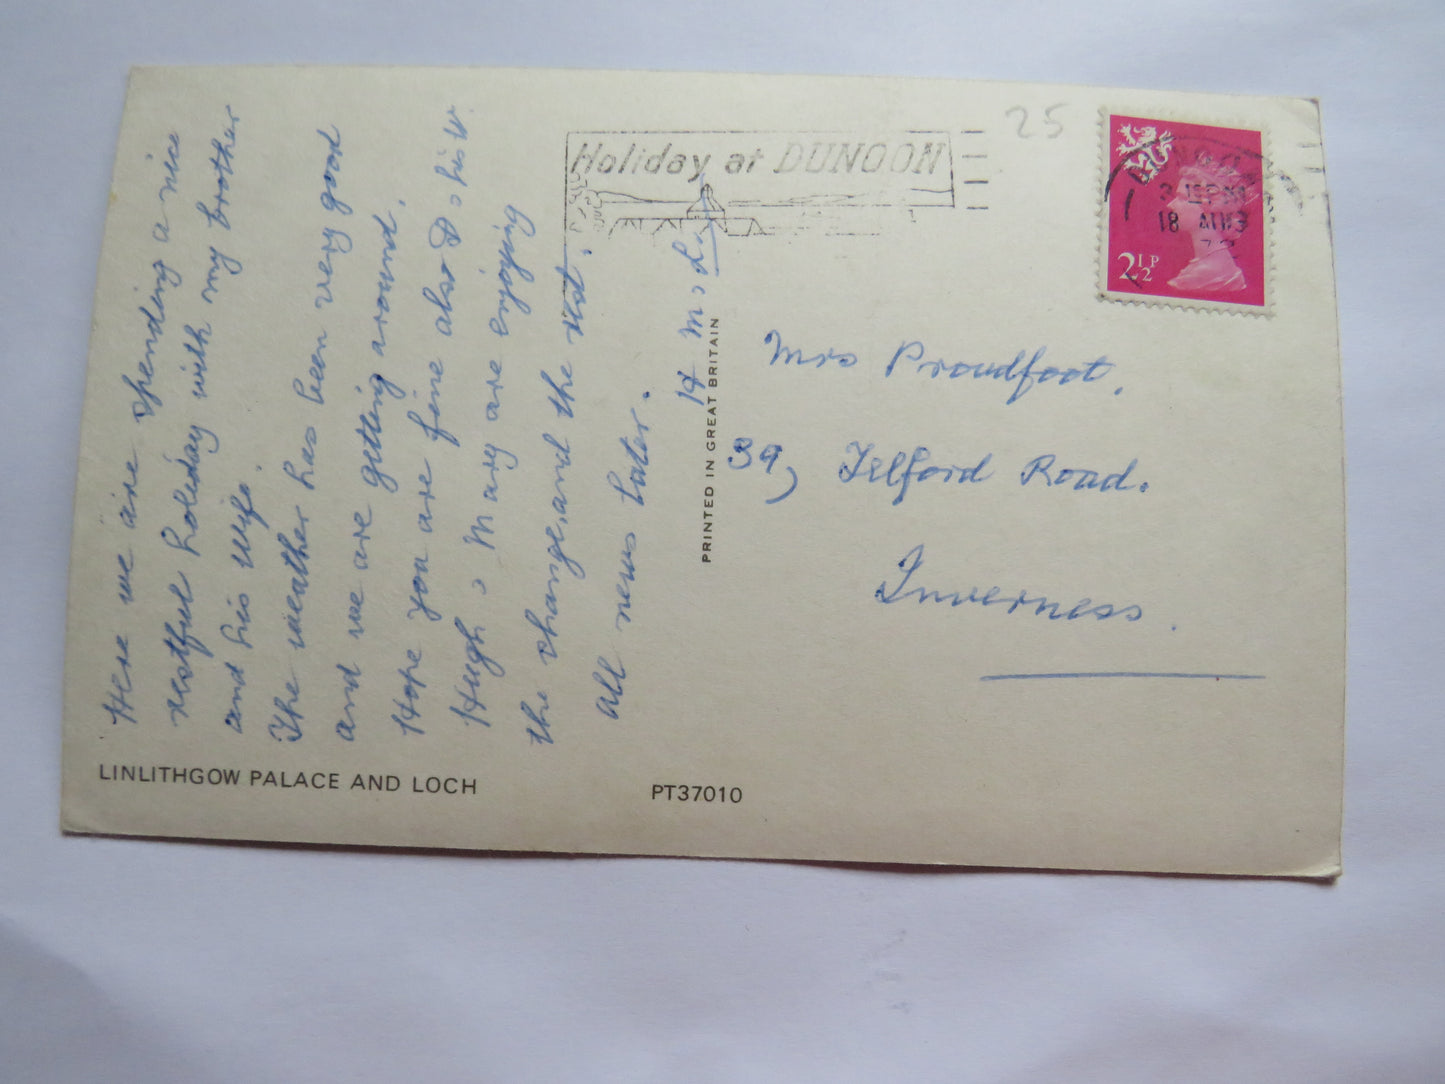 Here we are spending a nice
restful holiday with my brother
and his wife.
The weather has been very good
and we are getting around.
Hope you are fine also D & his W.
Hugh & Mary are enjoying
the change, and the rest.
all news later.
H M & L.
LINLITHGOW PALACE AND LOCH
PT37010
PRINTED IN GREAT BRITAIN
25
Holiday at DUNOON
DUNOON
18 AUG
2½P
Mrs Proudfoot.
39, Telford Road.
Inverness.